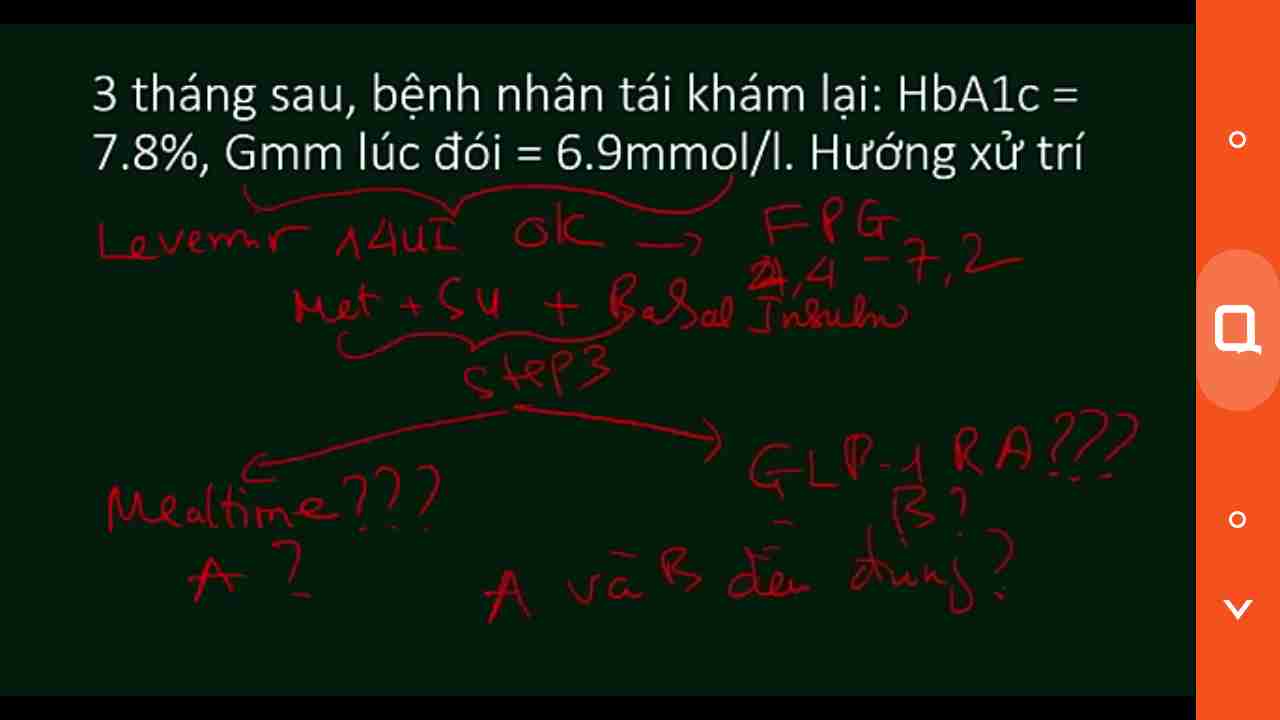 3 tháng sau, bệnh nhân tái khám lại: HbA1c =
7.8%, Gmm lúc đói = 6.9mmol/l. Hướng xử trí
Levemir 14UI OK → FPG
4,4 - 7,2
Met + SU + Basal Insulin
Step3
Mealtime??? GLP-1 RA???
A? B?
A và B đều đúng?